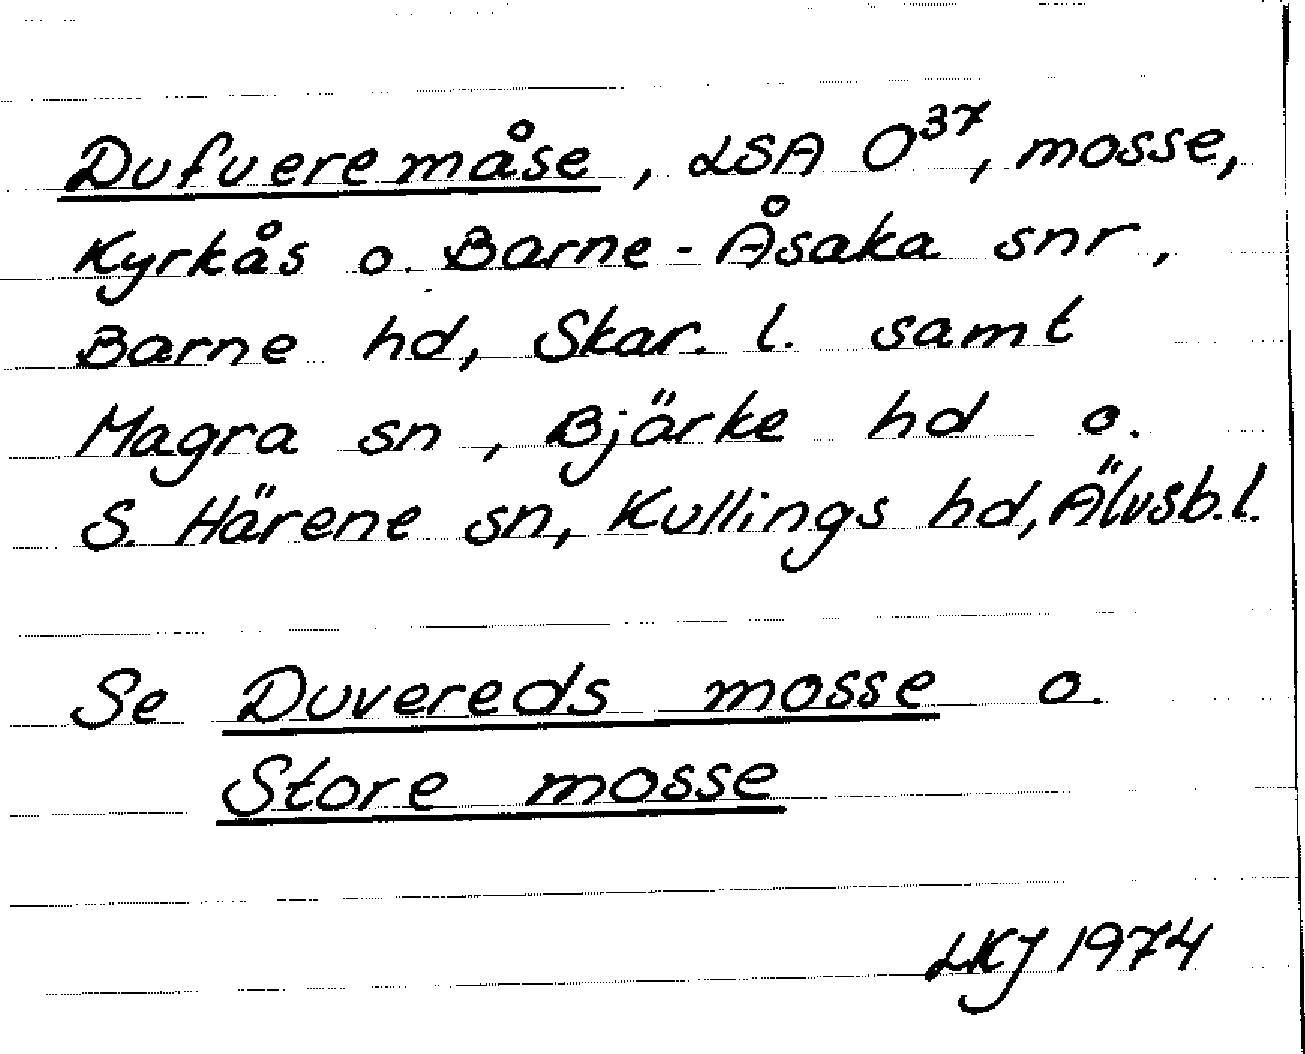 Dufveremåse, LSA O³⁷, mosse,
Kyrkås o. Barne-Åsaka snr,
Barne hd, Skar. l. samt
Magra sn, Bjärke hd o.
S. Härene sn, Kullings hd, Älvsb. l.
Se Duvereds mosse o.
Store mosse
LKJ 1974